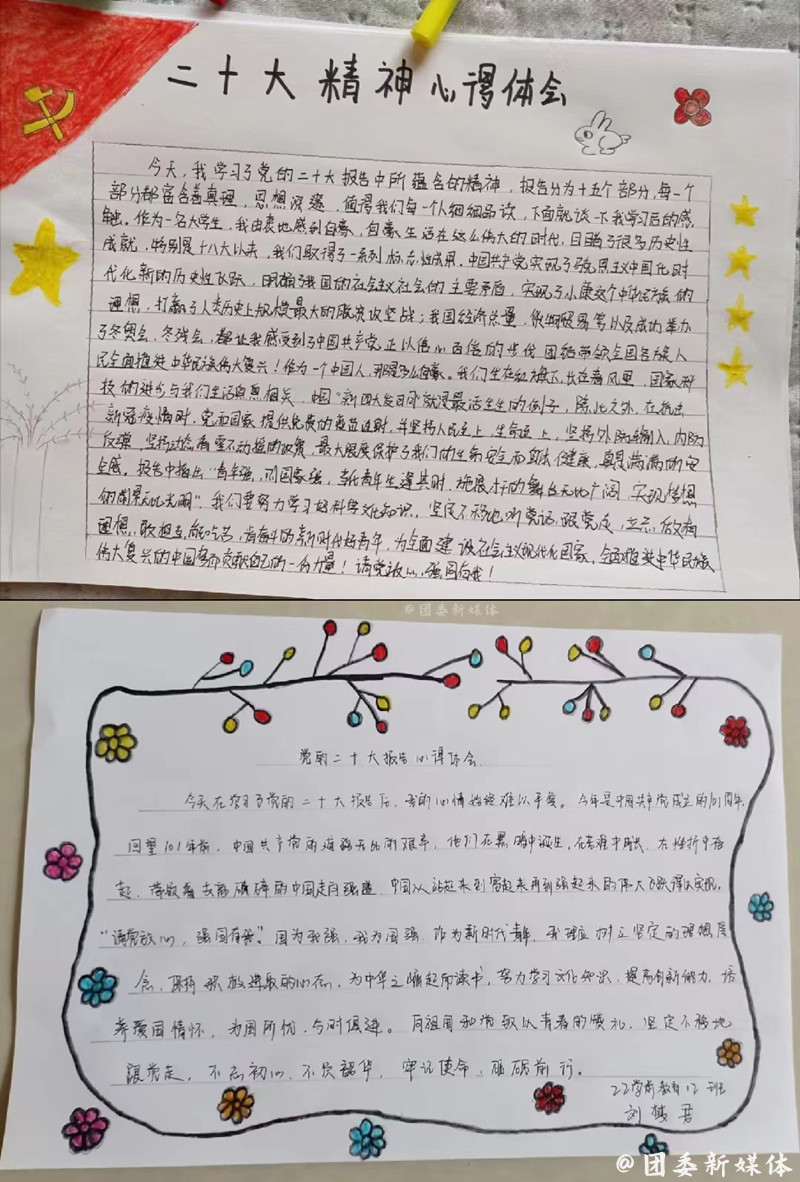 二十大精神心得体会
今天,我学习了党的二十大报告中所蕴含的精神,报告分为十五个部分,每一个
部分都富含着真理,思想深邃,值得我们每一个人细细品读,下面就谈一下我学习后的感
触。作为一名大学生,我由衷地感到自豪,自豪生活在这么伟大的时代,目睹了很多历史性
成就,特别是十八大以来,我们取得了一系列标志性成果,中国共产党实现了马克思主义中国化时
代化新的历史性飞跃,明确了我国的社会主义社会的主要矛盾,实现了小康这个中华民族的
理想,打赢了人类历史上规模最大的脱贫攻坚战;我国经济总量,货物贸易等以及成功举办
了冬奥会,冬残会,都让我感受到了中国共产党正以信心百倍的步伐团结带领全国各族人
民全面推进中华民族伟大复兴!作为一个中国人,那得多么自豪。我们生在红旗下,长在春风里,国家科
技的进步与我们生活息息相关,中国“新四大发明”就是最活生生的例子,除此之外,在抗击
新冠疫情时,党和国家提供免费的疫苗注射,并坚持人民至上,生命至上,坚持外防输入,内防
反弹,坚持动态清零不动摇的政策,最大限度保护了我们的生命安全和身体健康,真是满满的安
全感。报告中指出“青年强,则国家强,当代青年生逢其时,施展才干的舞台无比广阔,实现梦想
的前景无比光明”,我们要努力学习好科学文化知识,坚定不移地听党话,跟党走,立志做有
理想,敢担当,能吃苦,肯奋斗的新时代好青年,为全面建设社会主义现代化国家、全面推进中华民族
伟大复兴的中国梦而贡献自己的一份力量!请党放心,强国有我!
@团委新媒体
党的二十大报告心得体会
今天在学习了党的二十大报告后,我的心情始终难以平复。今年是中国共产党成立的101周年,
回望101年前,中国共产党的道路无比的艰辛,他们在黑暗中诞生,在苦难中成长,在挫折中奋
起,带领着去的中国走向强盛,中国从站起来到富起来再到强起来的伟大飞跃得以实现。
“请党放心,强国有我”。国为我强,我为国强,作为新时代青年,我理应树立坚定的理想信
念,保持积极进取的心态,为中华之崛起而读书,努力学习文化知识,提高创新能力,培
养爱国情怀,为国所忧,与时俱进。向祖国和党致以青春的赞礼,坚定不移地
跟党走,不忘初心,不负韶华,牢记使命,砥砺前行。
22学前教育12班
刘梦君
@团委新媒体